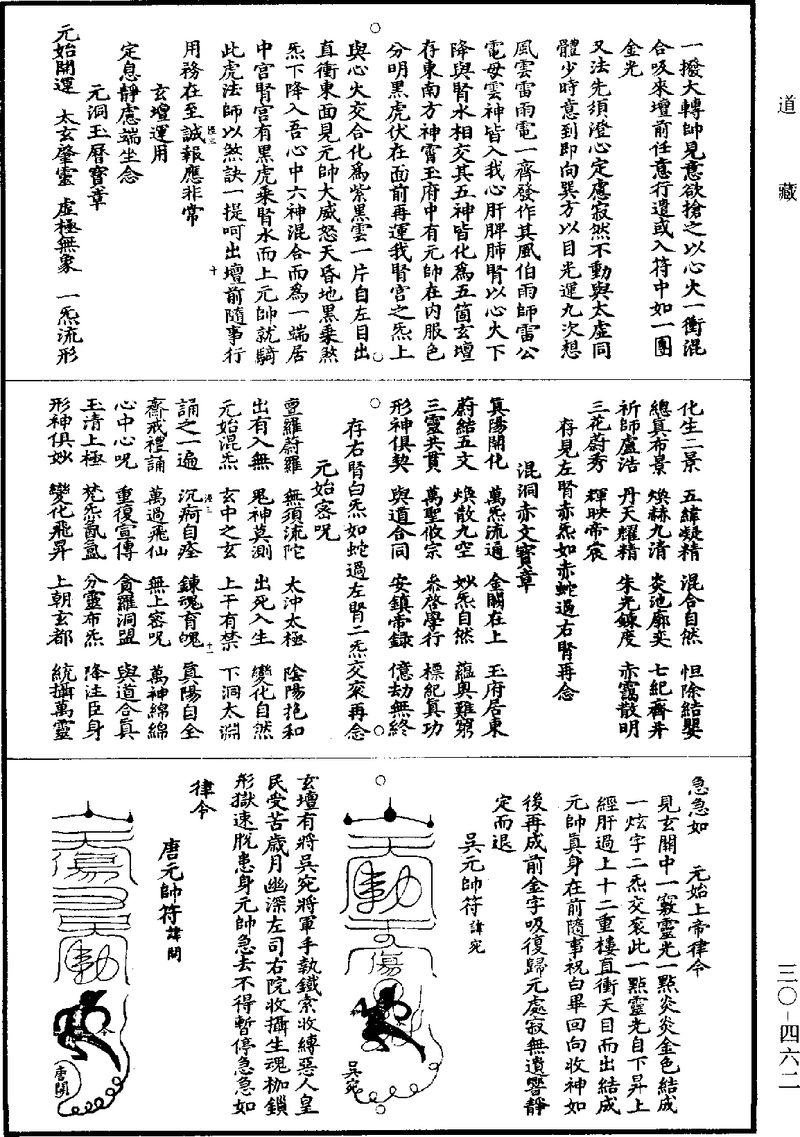 道藏
一撥大轉帥見意欲搶之以心火一衝混
合吸來壇前任意行遣或入符中如一團
金光
又法先須澄心定慮寂然不動與太虛同
體少時意到即向巽方以目光運九次想
風雲雷雨電一齊發作其風伯雨師雷公
電母雲神皆入我心肝脾肺腎以心火下
降與腎水相交其五神皆化為五箇玄壇
存東南方神霄玉府中有元帥在內服色
分明黑虎伏在面前再運我腎宮之炁上
與心火交合化為紫黑雲一片自左目出
直衝東面見元帥大威怒天昏地黑乘煞
炁下降入吾心中六神混合而為一端居
中宮腎宮有黑虎乘腎水而上元帥就騎
此虎法師以煞訣一提呵出壇前隨事行
用務在至誠報應非常
玄壇運用
定息靜慮端坐念
元洞玉曆寶章
元始開運 太玄肇靈 虛極無象 一炁流形
化生二景 五緯凝精 混合自然 怛除結嬰
總真布景 煥赫九清 炎池廓奕 七紀齊并
祈師盧浩 丹天耀精 朱光鍊度 赤靄散明
三花蔚秀 輝映帝宸
存見左腎赤炁如赤蛇過右腎再念
混洞赤文寶章
真陽開化 萬炁流通 金闕在上 玉府居東
蔚結五文 煥散九空 妙炁自然 蘊奧難窮
三靈共貫 萬聖攸宗 叅啓學行 標紀真功
形神俱契 與道合同 安鎮帝録 億劫無終
存右腎白炁如蛇過左腎二炁交衮再念
元始密呪
亶羅蔚羅 無須流陀 太沖太極 陰陽抱和
出有入無 鬼神莫測 出死入生 變化自然
元始混炁 玄中之玄 上干有禁 下洞太淵
誦之一遍 沉痾自痊 鍊魂育魄 真陽自全
齋戒禮誦 萬過飛仙 無上密呪 萬神綿綿
心中心呪 重復宣傳 貪羅洞盟 與道合真
玉清上極 梵炁氤氳 分靈布炁 降注臣身
形神俱妙 變化飛昇 上朝玄都 統攝萬靈
急急如 元始上帝律令
見玄關中一竅靈光一點炎炎金色結成
一炫字二炁交衮此一點靈光自下昇上
經肝過上十二重樓直衝天目而出結成
元帥真身在前隨事祝白畢回向收神如
後再成前金字吸復歸元處寂無遺響靜
定而退
吳元帥符 諱宛
吳宛
玄壇有將吳宛將軍手執鐵索收縛惡人皇
民受苦歲月幽深左司右院收攝生魂枷鎖
形獄速脫患身元帥急去不得暫停急急如
律令
唐元帥符 諱開
唐開
三〇-四六二